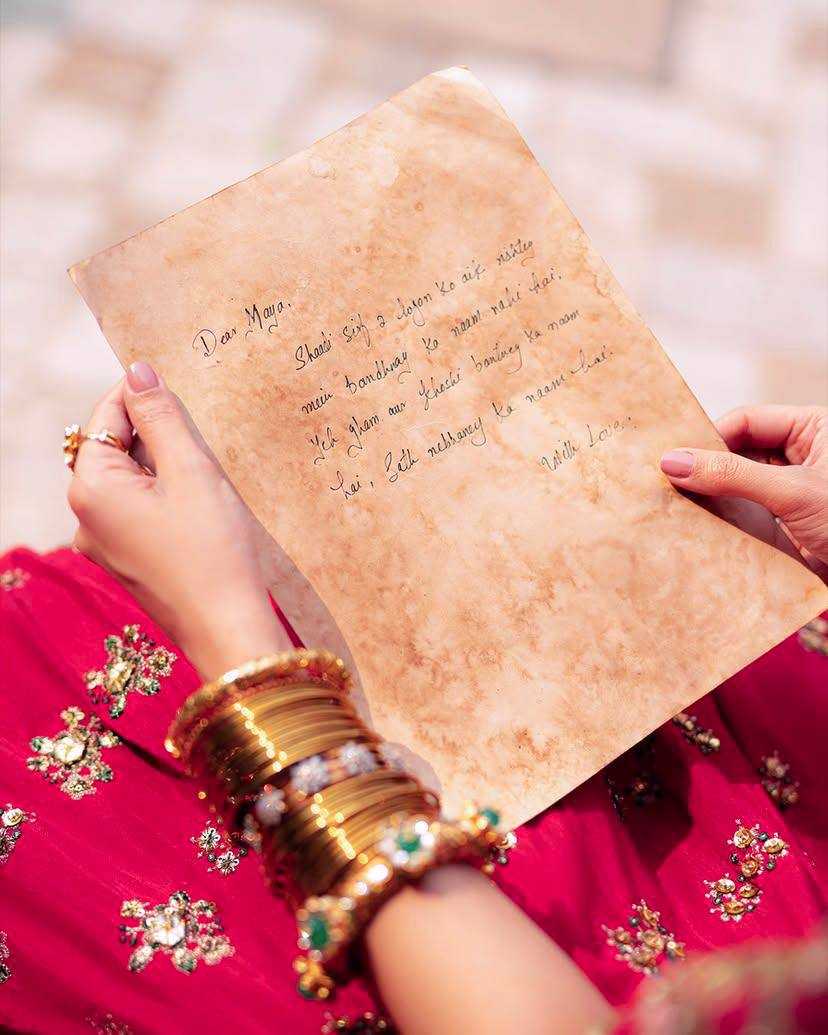 Dear Maya,
Shaadi sirf 2 logon ko aik rishtey
mein bandhnay ka naam nahi hai.
Yeh gham aur khushi bantney ka naam
hai, Sath nebhaney ka naam hai.
With Love..